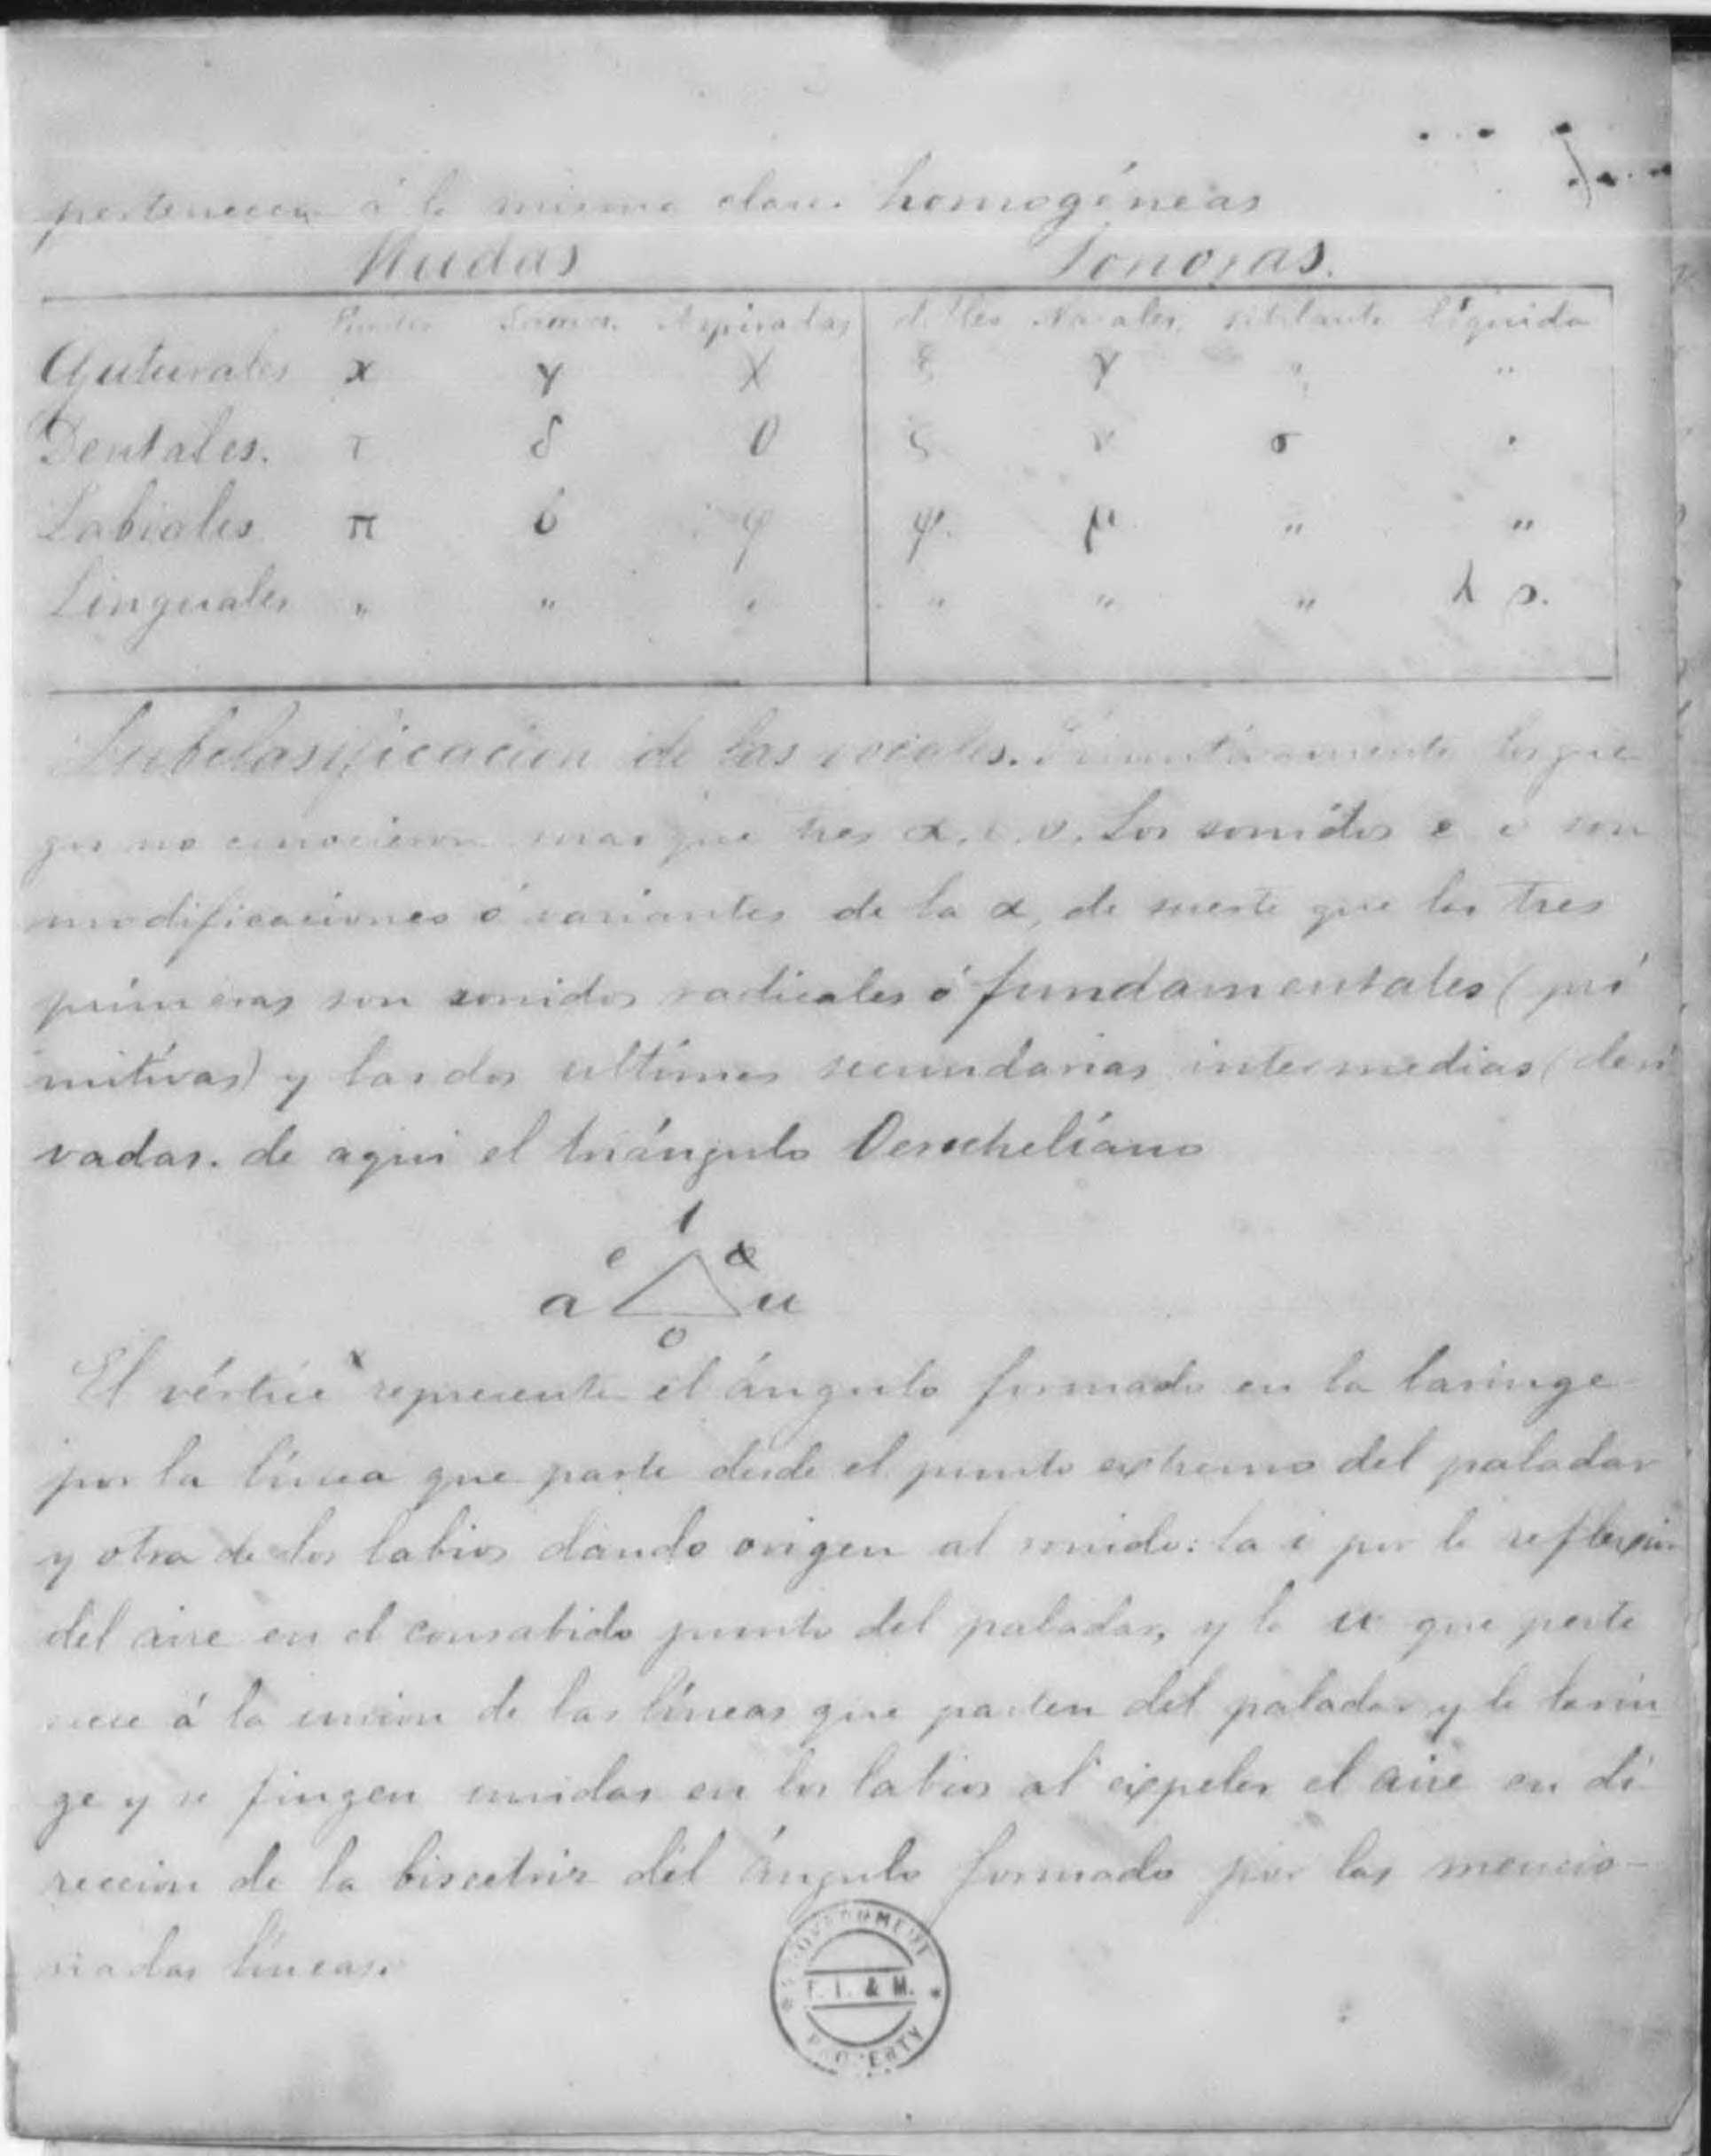 pertenecen á la misma clase. homogéneas
Mudas Sonoras.
Aspiradas dobles Nasales silbante líquida
Guturales x γ χ ξ γ " "
Dentales. τ δ θ ζ ν σ "
Labiales π б φ ψ. μ " "
Linguales " " " " " " λ ρ.
Subclasificacion de las vocales. Primitivamente los grie
gos no conocieron mas que tres α. ι. υ. Los sonidos e o son
modificaciones ó variantes de la α, de suerte que las tres
primeras son sonidos radicales ó fundamentales (pri
mitivas) y las dos ultimas secundarias intermedias (deri
vadas. de aqui el triángulo
i
e
a u
o
El vértice x represente el ángulo formado en la laringe
por la línea que parte desde el punto extremo del paladar
y otra de los labios dando origen al sonido: la i por la reflexion
del aire en el consabido punto del paladar, y la u que perte
nece á la union de las líneas que parten del paladar y la larin
ge y se fingen unidas en los labios al expeler el aire en di
reccion de la bisectriz del ángulo formado por las mencio-
nadas líneas.
GOVERNMENT
F. I. & M.
PROPERTY